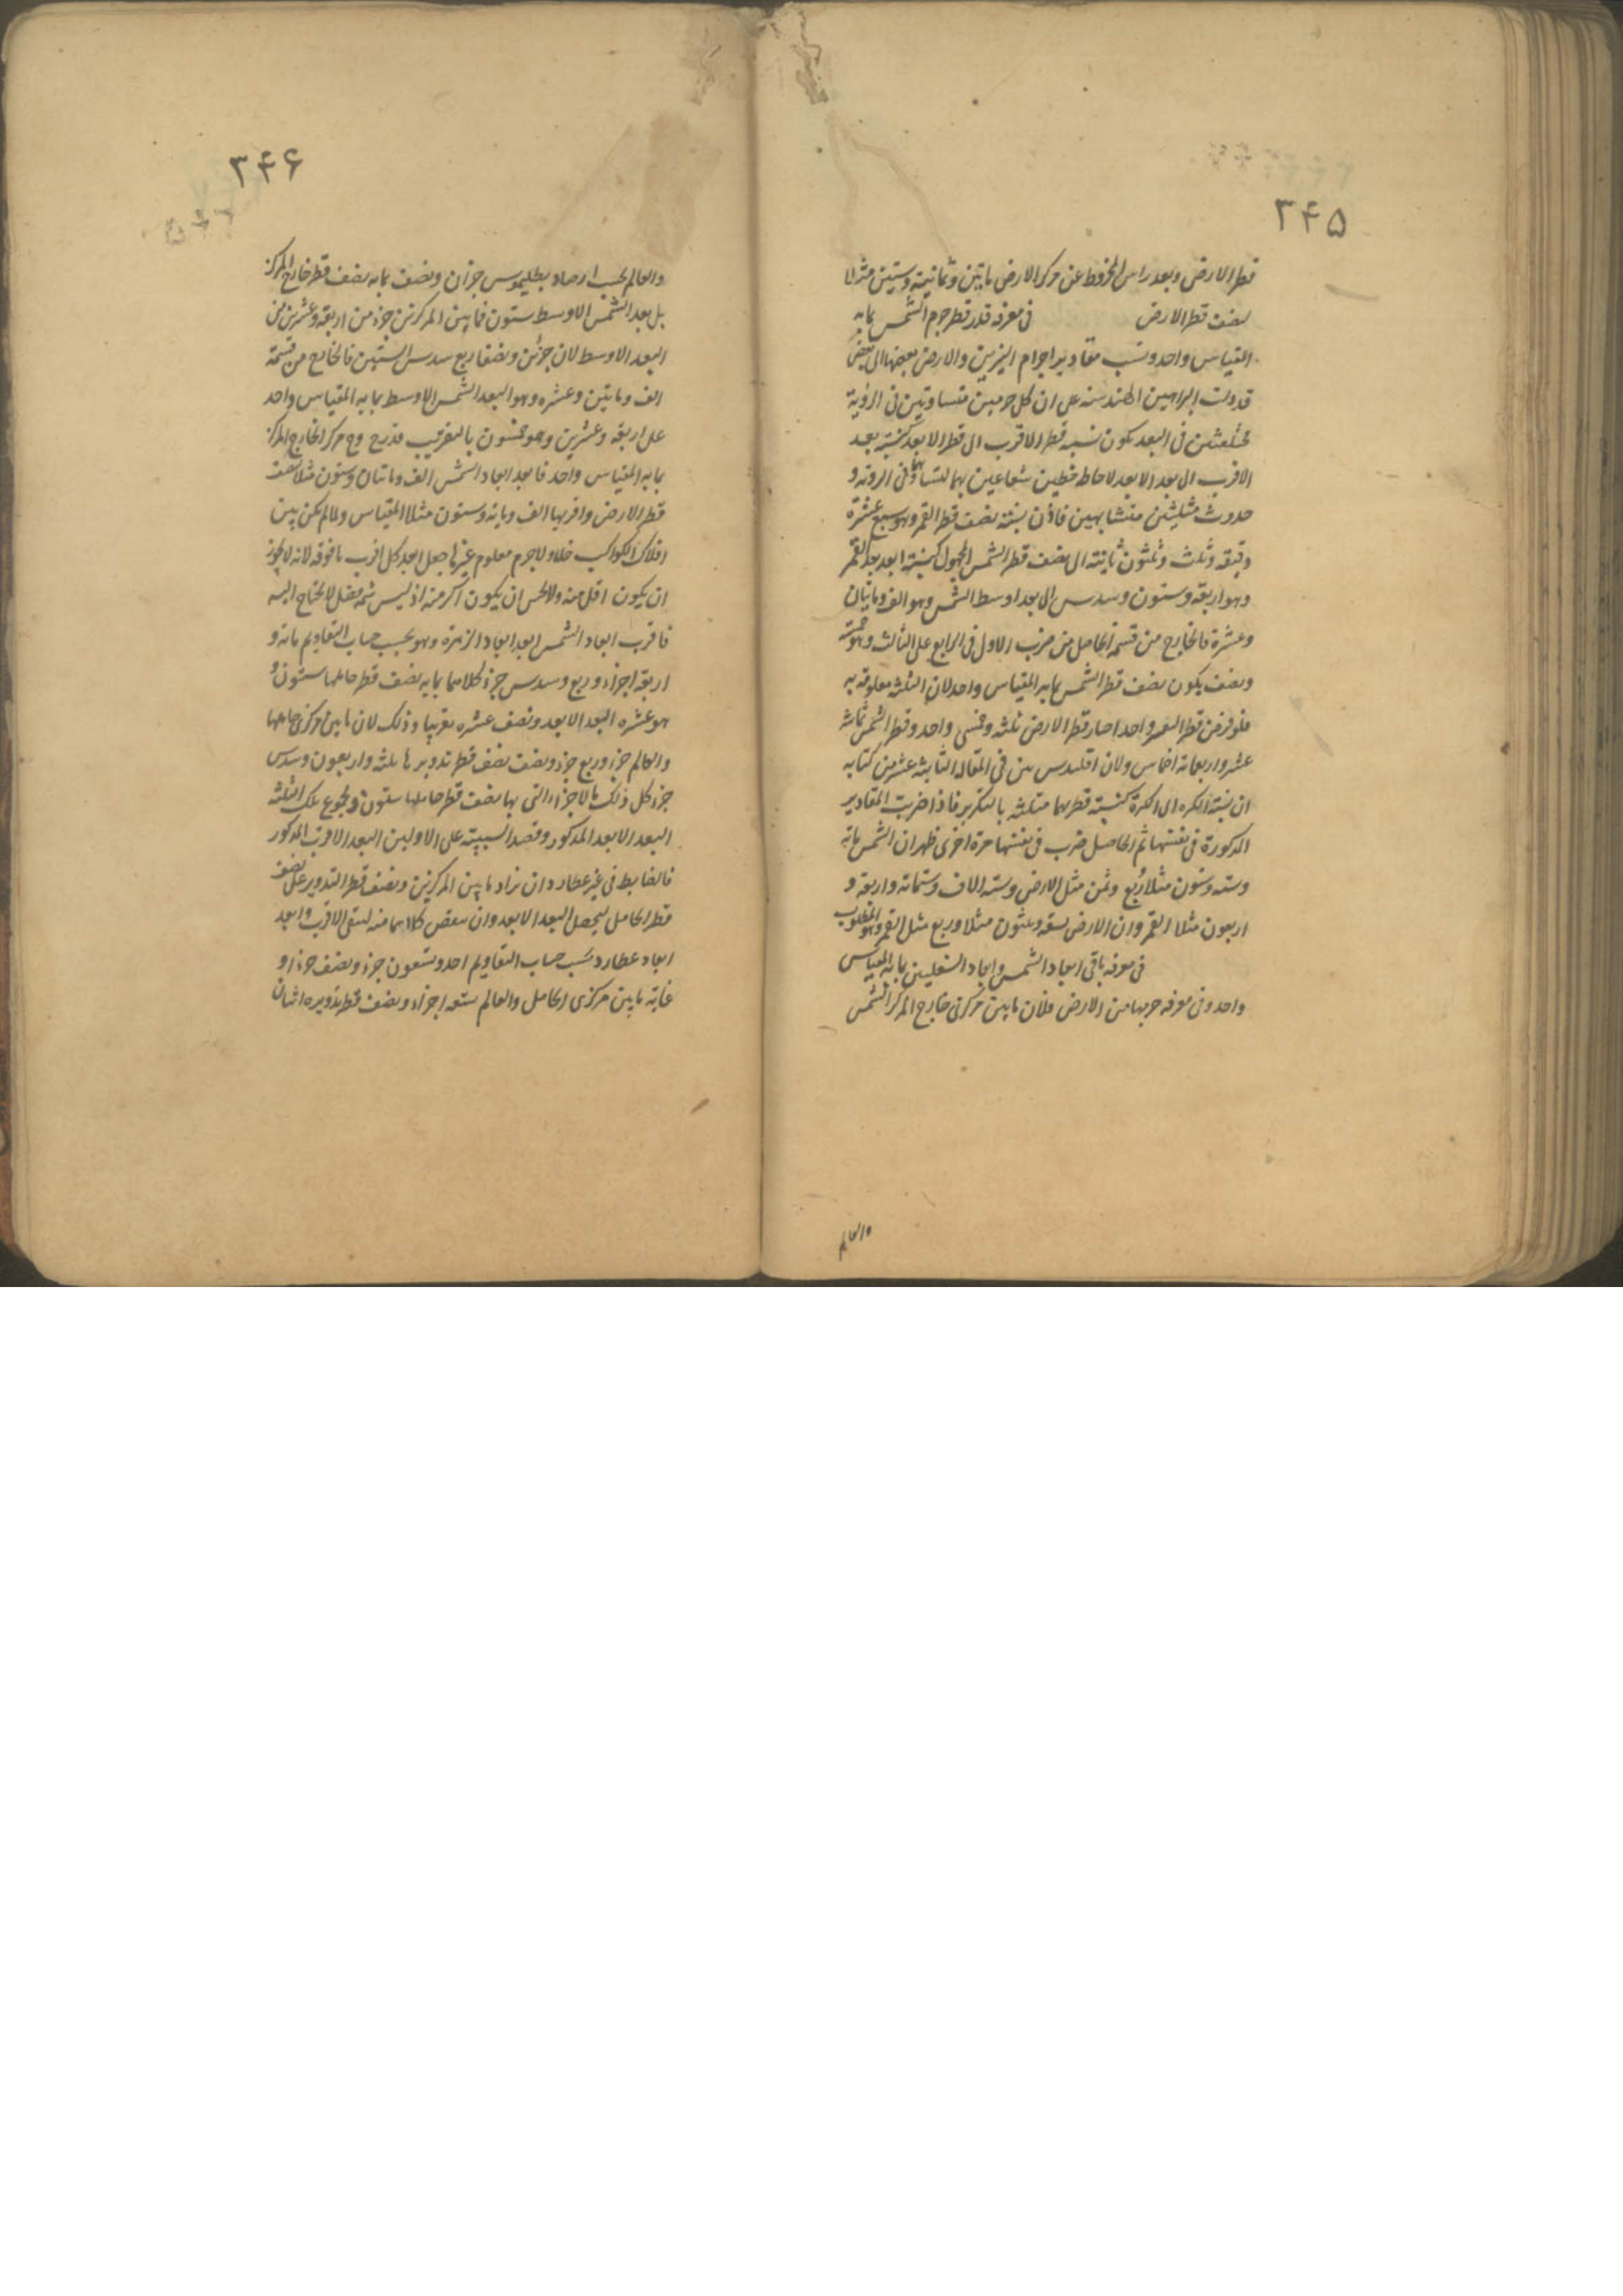 ۳۴۵
قطر الارض وبعد راس المخروط عن مركز الارض مائتين وثمانية وستين مثلا
لنصف قطر الارض فى معرفة قدر قطر جرم الشمس بما به
المقياس واحد ونسب مقادير اجرام النيرين والارض بعضها الى بعض
قد دلت البراهين الهندسية على ان كل جرمين متساويتين فى الرؤية
مختلفين فى البعد يكون نسبة قطر الاقرب الى قطر الابعد كنسبة بعد
الاقرب الى بعد الابعد لاحاطة خطين شعاعين بهما لتساويهما فى الروية و
حدوث مثلثين متشابهين فاذن نسبة نصف قطر القمر وهو سبع عشرة
دقيقة وثلث وثلثون ثانية الى نصف قطر الشمس المجهول كنسبة ابعد بعد القمر
وهو اربعة وستون وسدس الى بعد اوسط الشمس وهو الف ومائتان
وعشرة فالخارج من قسمة الحاصل من ضرب الاول فى الرابع على الثالث وهو خمسة
ونصف يكون نصف قطر الشمس بما به المقياس واحد لان الثلثة معلومة به
فلو فرض قطر القمر واحدا صار قطر الارض ثلثة وخمسى واحد وقطر الشمس ثمانية
عشر واربعة اخماس ولان اقليدس بين فى المقالة الثانية عشر من كتابه
ان نسبة الكره الى الكرة كنسبة قطريهما مثلثة بالتكرير فاذا ضربت المقادير
المذكورة فى نفسها ثم الحاصل ضرب فى نفسها مرة اخرى ظهر ان الشمس مائة
وستة وستون مثلا وربع وثمن مثل الارض وستة الاف وستمائة واربعة و
اربعون مثلا القمر وان الارض تسعة وثلثون مثلا وربع مثل القمر وهو المطلوب
فى معرفة باقى ابعاد الشمس وابعاد السفليين بما به المقياس
واحد وفى معرفة جرمها من الارض فلان ما بين مركزى خارج المركز الشمس
والعالم
۳۴۶
والعالم بحسب ارصاد بطليموس جزان ونصف بما به نصف قطر خارج المركز
بل بعد الشمس الاوسط ستون فما بين المركزين جزء من اربعة وعشرين من
البعد الاوسط لان جزئين ونصفا ربع سدس الستين فالخارج من قسمة
الف ومائتين وعشره وهو البعد الشمس الاوسط بما به المقياس واحد
على اربعة وعشرين وهو خمسون بالتقريب قدر ج مركز الخارج المركز
بما به المقياس واحد فابعد ابعاد الشمس الف ومائتان وستون مثلا لنصف
قطر الارض واقربها الف ومائة وستون مثلا المقياس ولما لم يكن بين
افلاك الكواكب خلاء ولا جرم معلوم غيرها جعل ابعد كل اقرب ما فوقه لانه لا يجوز
ان يكون اقل منه ولا يحسن ان يكون اكبر منه اذ ليس ثمه فضل لا يحتاج اليه
فاقرب ابعاد الشمس ابعد ابعاد الزهرة وهو بحسب حساب التقاويم مائة و
اربعة اجزاء وربع وسدس جزء كلاهما بما به نصف قطر حاملها ستون و
هو عشره البعد الابعد ونصف عشره تقريبا وذلك لان ما بين مركزى حاملها
والعالم جزء وربع جزء ونصف نصف قطر تدويرها ثلثة واربعون وسدس
جزء كل ذلك بالاجزاء التى بها نصف قطر حاملها ستون ومجموع تلك الثلثة
البعد الابعد المذكور وقصد النسبة على الاولين البعد الاقرب المذكور
فالضابط فى غير عطارد ان نزاد ما بين المركزين ونصف قطر التدوير على نصف
قطر الحامل ليحصل البعد الابعد وان ينقص كلاهما منه لتبقى الاقرب وابعد
ابعاد عطارد بحسب حساب التقاويم احد وتسعون جزء ونصف جزء او
غاية ما بين مركزى الحامل والعالم ستة اجزاء ونصف قطر تدويره اثنان